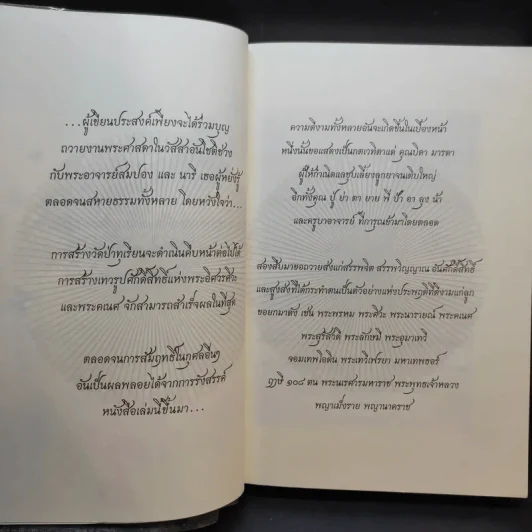 ...ผู้เขียนประสงค์เพียงจะได้ร่วมบุญ
ถวายงานพระศาสดาในวัสสาอันโชติช่วง
กับพระอาจารย์สมปอง และ นารี เธอผู้หยั่งรู้
ตลอดจนสหายธรรมทั้งหลาย โดยหวังใจว่า...
การสร้างวัดป่าทุเรียนจะดำเนินคืบหน้าต่อไปได้
การสร้างเทวรูปศักดิ์สิทธิ์แห่งพระอิศวรศิวะ
และพระคเณศ จักสามารถสำเร็จผลในที่สุด
ตลอดจนการสัมฤทธิ์ในกุศลอื่นๆ
อันเป็นผลพลอยได้จากการรังสรรค์
หนังสือเล่มนี้ขึ้นมา...
ความดีงามทั้งหลายอันจะเกิดขึ้นในเบื้องหน้า
หนึ่งนั้นขอแสดงเป็นกตเวทิตาแด่ คุณบิดา มารดา
ผู้ให้กำเนิดและชุบเลี้ยงลูกยาจนเติบใหญ่
อีกทั้งคุณ ปู่ ย่า ตา ยาย พี่ ป้า อา ลุง น้า
และครูบาอาจารย์ ที่การุณย์มาโดยตลอด
สองสืบมาขอถวายสิ่งแก่สรรพจิต สรรพวิญญาณ อันศักดิ์สิทธิ์
และสูงส่งที่ได้กระทำตนเป็นตัวอย่างแห่งประพฤติที่ดีงามแก่ลูก
ขอยกมาดัง เช่น พระพรหม พระศิวะ พระนารายณ์ พระคเณศ
พระสุรัสวดี พระลักษมี พระอุมาเทวี
จอมเทพไอดิน พระเทวีเฟรยา มหาเทพธอร์
ฤๅษี ๑๐๘ ตน พระนเรศวรมหาราช พระพุทธเจ้าหลวง
พญาเม็งราย พญานาคราช